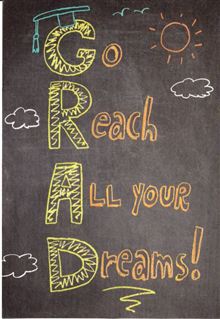 Go
Reach
ALL your
Dreams!